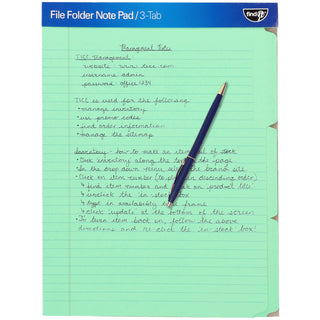 File Folder Note Pad / 3-Tab
find It
Management Notes
TICC Management
website: www. ticc. com
username: admin
password: office1234
TICC is used for the following
• manage inventory
• use promo codes
• find order information
• manage the sitemap
Inventory - how to mark an item out of stock
• Click 'inventory' along the top of the page
• In the drop down menu, click the brand site
• Click on item number (to place in descending order)
↳ find item number and click on 'product title'
↳ uncheck the 'in stock' box
↳ type in availability time frame
↳ click update at the bottom of the screen
• To turn item back on, follow the above
directions and re-click the 'in stock' box!